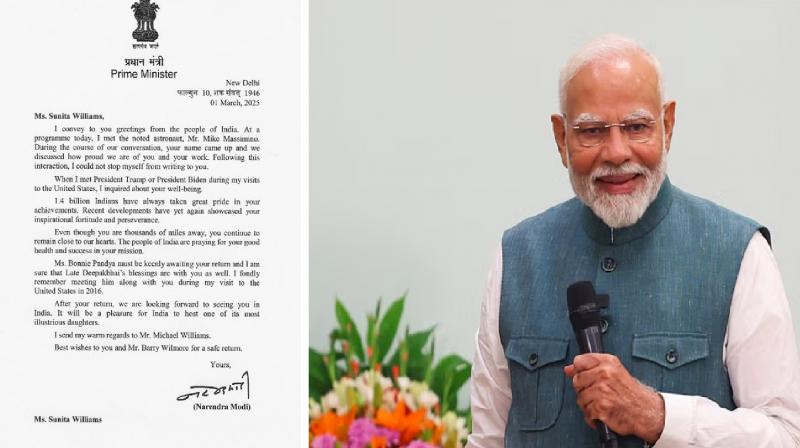 सत्यमेव जयते
प्रधान मंत्री
Prime Minister
New Delhi
फाल्गुन 10, शक संवत् 1946
01 March, 2025
Ms. Sunita Williams,
I convey to you greetings from the people of India. At a
programme today, I met the noted astronaut, Mr. Mike Massimino.
During the course of our conversation, your name came up and we
discussed how proud we are of you and your work. Following this
interaction, I could not stop myself from writing to you.
When I met President Trump or President Biden during my visits
to the United States, I inquired about your well-being.
1.4 billion Indians have always taken great pride in your
achievements. Recent developments have yet again showcased your
inspirational fortitude and perseverance.
Even though you are thousands of miles away, you continue to
remain close to our hearts. The people of India are praying for your good
health and success in your mission.
Ms. Bonnie Pandya must be keenly awaiting your return and I am
sure that Late Deepakbhai's blessings are with you as well. I fondly
remember meeting him along with you during my visit to the
United States in 2016.
After your return, we are looking forward to seeing you in
India. It will be a pleasure for India to host one of its most
illustrious daughters.
I send my warm regards to Mr. Michael Williams.
Best wishes to you and Mr. Barry Wilmore for a safe return.
Yours,
(Narendra Modi)
Ms. Sunita Williams